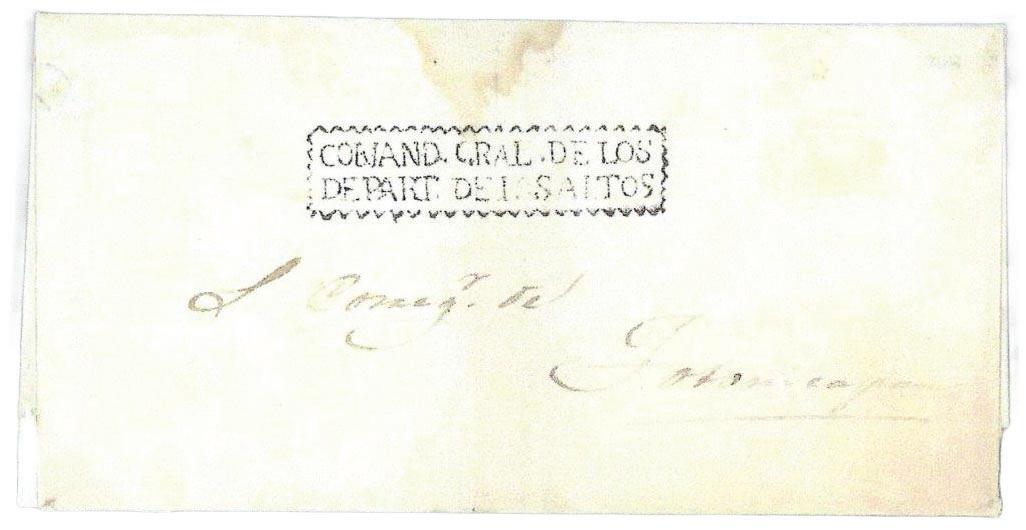 COMAND. GRAL. DE LOS
DEPART. DE LOS ALTOS
S Correg.r de
Totonicapan